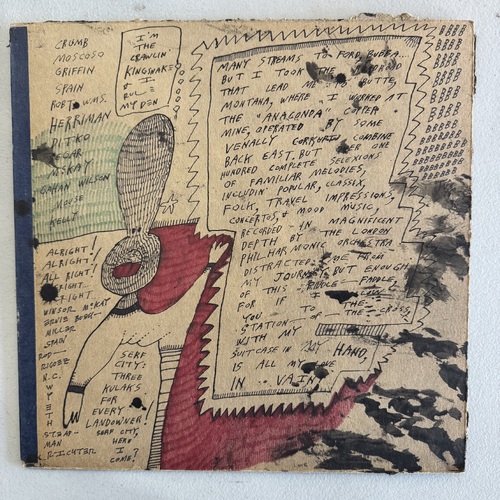 CRUMB
MOSCOSO
GRIFFIN
SPAIN
ROBT WMS.
HERRIMAN
DITKO
SEGAR
McKAY
GAHAN WILSON
MOUSE
KELLY
I'M
THE
CRAWLIN'
KINGSNAKE
& I
RULE
MY DEN
MANY STREAMS TO FORD, BUBBA...
BUT I TOOK THE
THAT LEAD ME TO BUTTE,
MONTANA, WHERE I WORKED AT
THE "ANACONDA" COPPER
MINE, OPERATED BY SOME
VENALLY CORRUPT COMBINE
BACK EAST. BUT OVER ONE
HUNDRED COMPLETE SELEXIONS
OF FAMILIAR MELODIES,
INCLUDIN' POPULAR, CLASSIX,
FOLK, TRAVEL IMPRESSIONS,
CONCERTOS, & MOOD MUSIC,
RECORDED IN MAGNIFICENT
DEPTH BY THE LONDON
PHILHARMONIC ORCHESTRA
DISTRACTED ME FROM
MY JOURNEY. BUT ENOUGH
OF THIS FIDDLE-FADDLE,
FOR IF I FOLLOW
YOU TO THE
STATION
WITH MY
SUITCASE IN MY HAND,
IS ALL MY LOVE
IN VAIN?
BBB
ALRIGHT!
ALRIGHT!
ALL RIGHT!
WINSOR McKAY
ERNIE BUSH-
MILLER
SPAIN
ROD-
RIGUEZ
N.C.
WYETH
STEAD-
MAN
RICHTER
SERF
CITY:
THREE
KULAKS
FOR
EVERY
LANDOWNER!
SERF CITY,
HERE
I
COME!